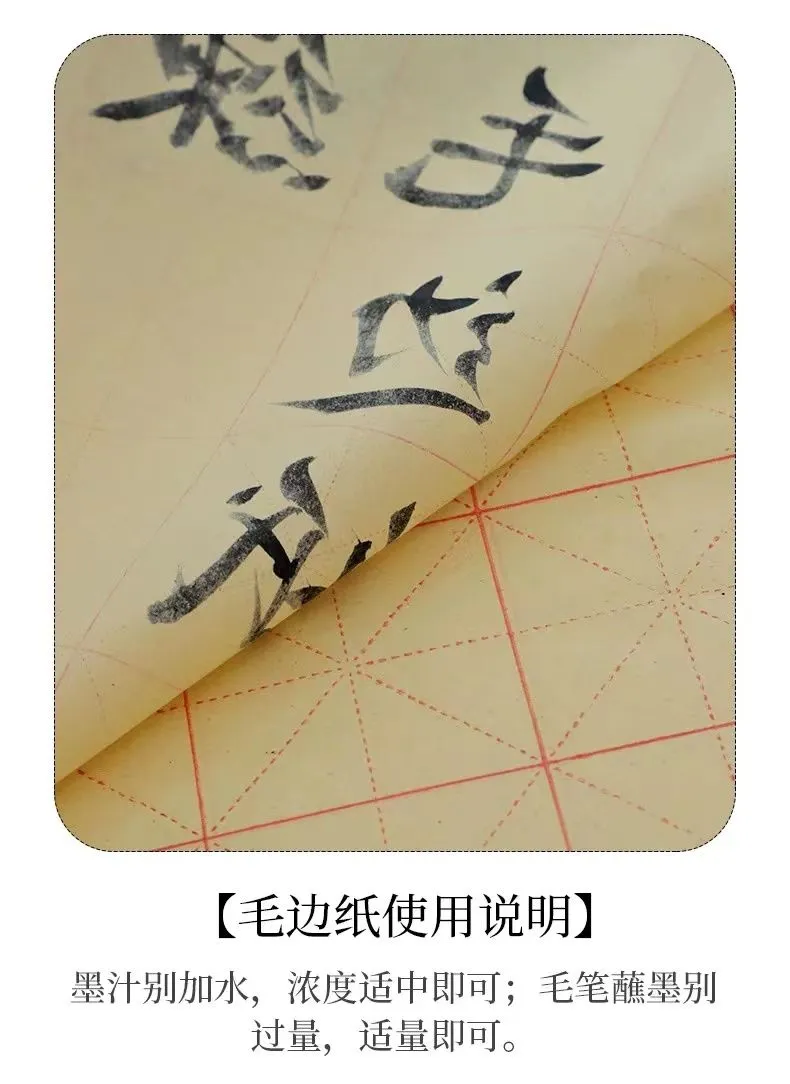 毛
边
纸
【毛边纸使用说明】
墨汁别加水，浓度适中即可；毛笔蘸墨别
过量，适量即可。